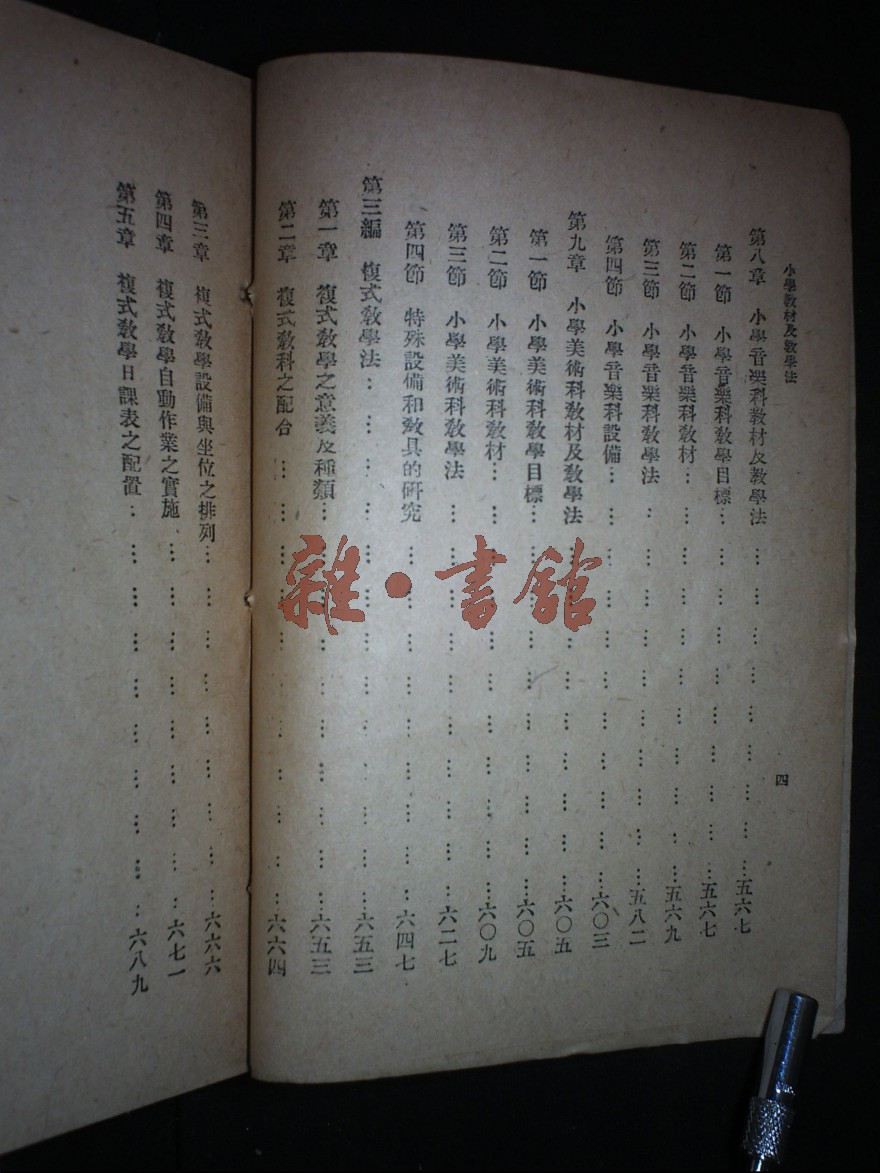 小學教材及教學法
四
第八章 小學音樂科教材及教學法 … … … … … … … … …五六七
第一節 小學音樂科教學目標… … … … … … … … …五六七
第二節 小學音樂科教材… … … … … … … … … …五六九
第三節 小學音樂科教學法 … … … … … … … … …五八二
第四節 小學音樂科設備… … … … … … … … … …六〇三
第九章 小學美術科教材及教學法 … … … … … … … … …六〇五
第一節 小學美術科教學目標… … … … … … … … …六〇五
第二節 小學美術科教材… … … … … … … … … …六〇九
第三節 小學美術科教學法 … … … … … … … … …六二七
第四節 特殊設備和教具的研究 … … … … … … … …六四七
第三編 複式教學法… … … … … … … … … … … …六五三
第一章 複式教學之意義及種類… … … … … … … … …六五三
第二章 複式教科之配合 … … … … … … … … … …六六四
第三章 複式教學設備與坐位之排列… … … … … … … …六六六
第四章 複式教學自動作業之實施 … … … … … … … …六七一
第五章 複式教學日課表之配置… … … … … … … … …六八九
雜·書館